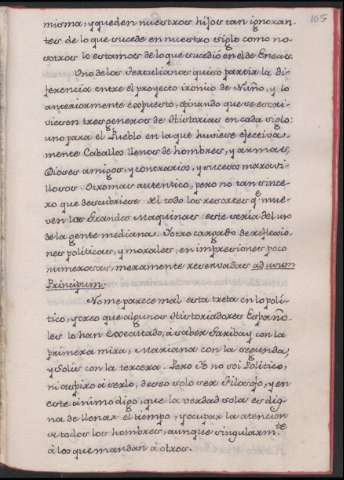 105
misma, y queden nuestros hijos tan ignoran-
tes de lo que sucede en nuestro siglo como no-
sotros lo estamos de lo que sucedió en el de Eneas.
Uno de los Tertulianos quiso partir la di-
ferencia entre el proyecto irónio de Nuño, y lo
anteriormente expuesto, opinando que se escri-
viesen tres generos de Historias en cada siglo:
uno para el Pueblo en la que huviese efectiva-
mente Caballos llenos de hombres, y armas,
Dioses amigos, y contrarios, y sucesos maravi-
llosos. Otro mas autentico, pero no tan since-
ro que descubriese del todo los resortes q.e mue-
ven las Grandes Maquinas: este sería del uso
de la gente mediana. Y otro cargado de reflexio-
nes politicas, y morales, en impresiones poco
numerosas, meramente reservadas ad usum
Principum.
No me parece mal esta treta en lo polí-
tico, y creo que algunos Historiadores Españo-
les lo han executado, á saber Garibay con la
primera mira, Mariana con la segunda,
y Solis con la tercera. Pero Yo no soi Politico,
ni aspiro á serlo, deseo solo ser Filosofo, y en
este ánimo digo, que la verdad sola es dig-
na de llenar el tiempo, y ocupar la atencion
de todos los hombres, aunque singularm.te
á los que mandan á otros.